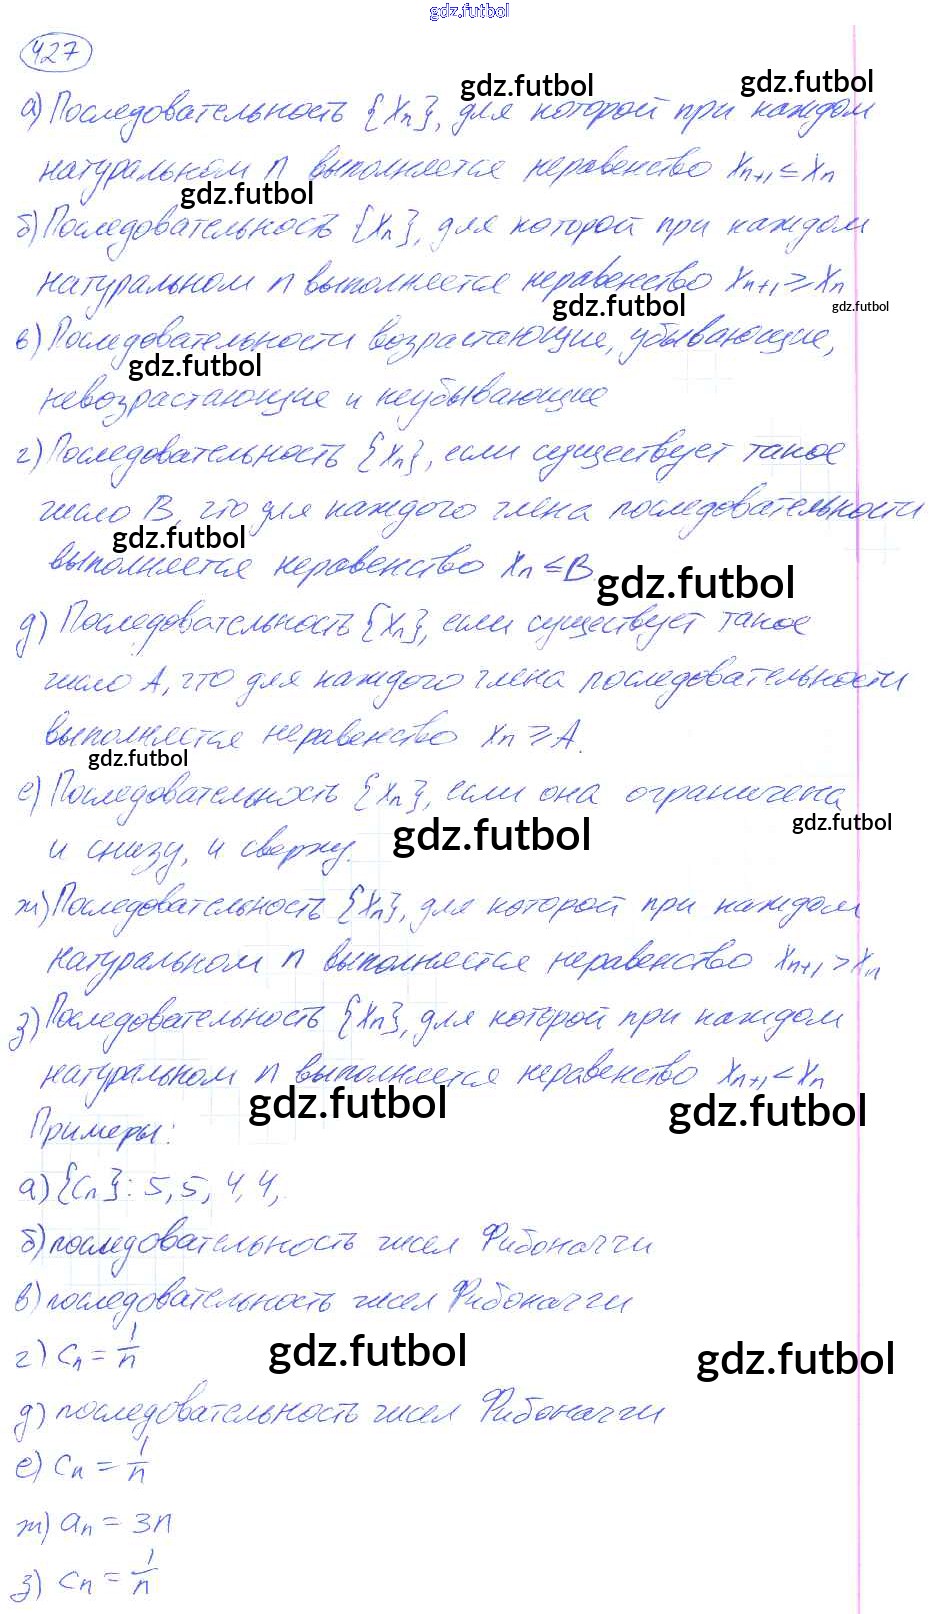 gdz.futbol
427
gdz.futbol
gdz.futbol
а) Последовательность {xₙ}, для которой при каждом
натуральном n выполняется неравенство xₙ₊₁ ≤ xₙ
gdz.futbol
б) Последовательность {xₙ}, для которой при каждом
натуральном n выполняется неравенство xₙ₊₁ ≥ xₙ
gdz.futbol
gdz.futbol
в) Последовательности возрастающие, убывающие,
gdz.futbol
невозрастающие и неубывающие
г) Последовательность {xₙ}, если существует такое
число B, что для каждого члена последовательности
gdz.futbol
выполняется неравенство xₙ ≤ B.
gdz.futbol
д) Последовательность {xₙ}, если существует такое
число A, что для каждого члена последовательности
выполняется неравенство xₙ ≥ A.
gdz.futbol
е) Последовательность {xₙ}, если она ограничена
gdz.futbol
и снизу, и сверху.
gdz.futbol
ж) Последовательность {xₙ}, для которой при каждом
натуральном n выполняется неравенство xₙ₊₁ > xₙ
з) Последовательность {xₙ}, для которой при каждом
натуральном n выполняется неравенство xₙ₊₁ < xₙ
gdz.futbol
gdz.futbol
Примеры:
а) {cₙ}: 5, 5, 4, 4,
б) последовательность чисел Фибоначчи
в) последовательность чисел Фибоначчи
г) cₙ = 1/n
gdz.futbol
gdz.futbol
д) последовательность чисел Фибоначчи
е) cₙ = 1/n
ж) aₙ = 3n
з) cₙ = 1/n